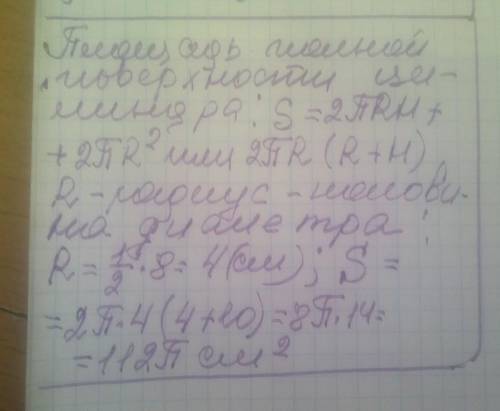 Площадь полной
поверхности ци-
линдра: S = 2πRH +
+ 2πR² или 2πR (R + H)
R - радиус - полови-
на диаметра:
R = 1/2 · 8 = 4 (см); S =
= 2π · 4 (4 + 10) = 8π · 14 =
= 112π см²